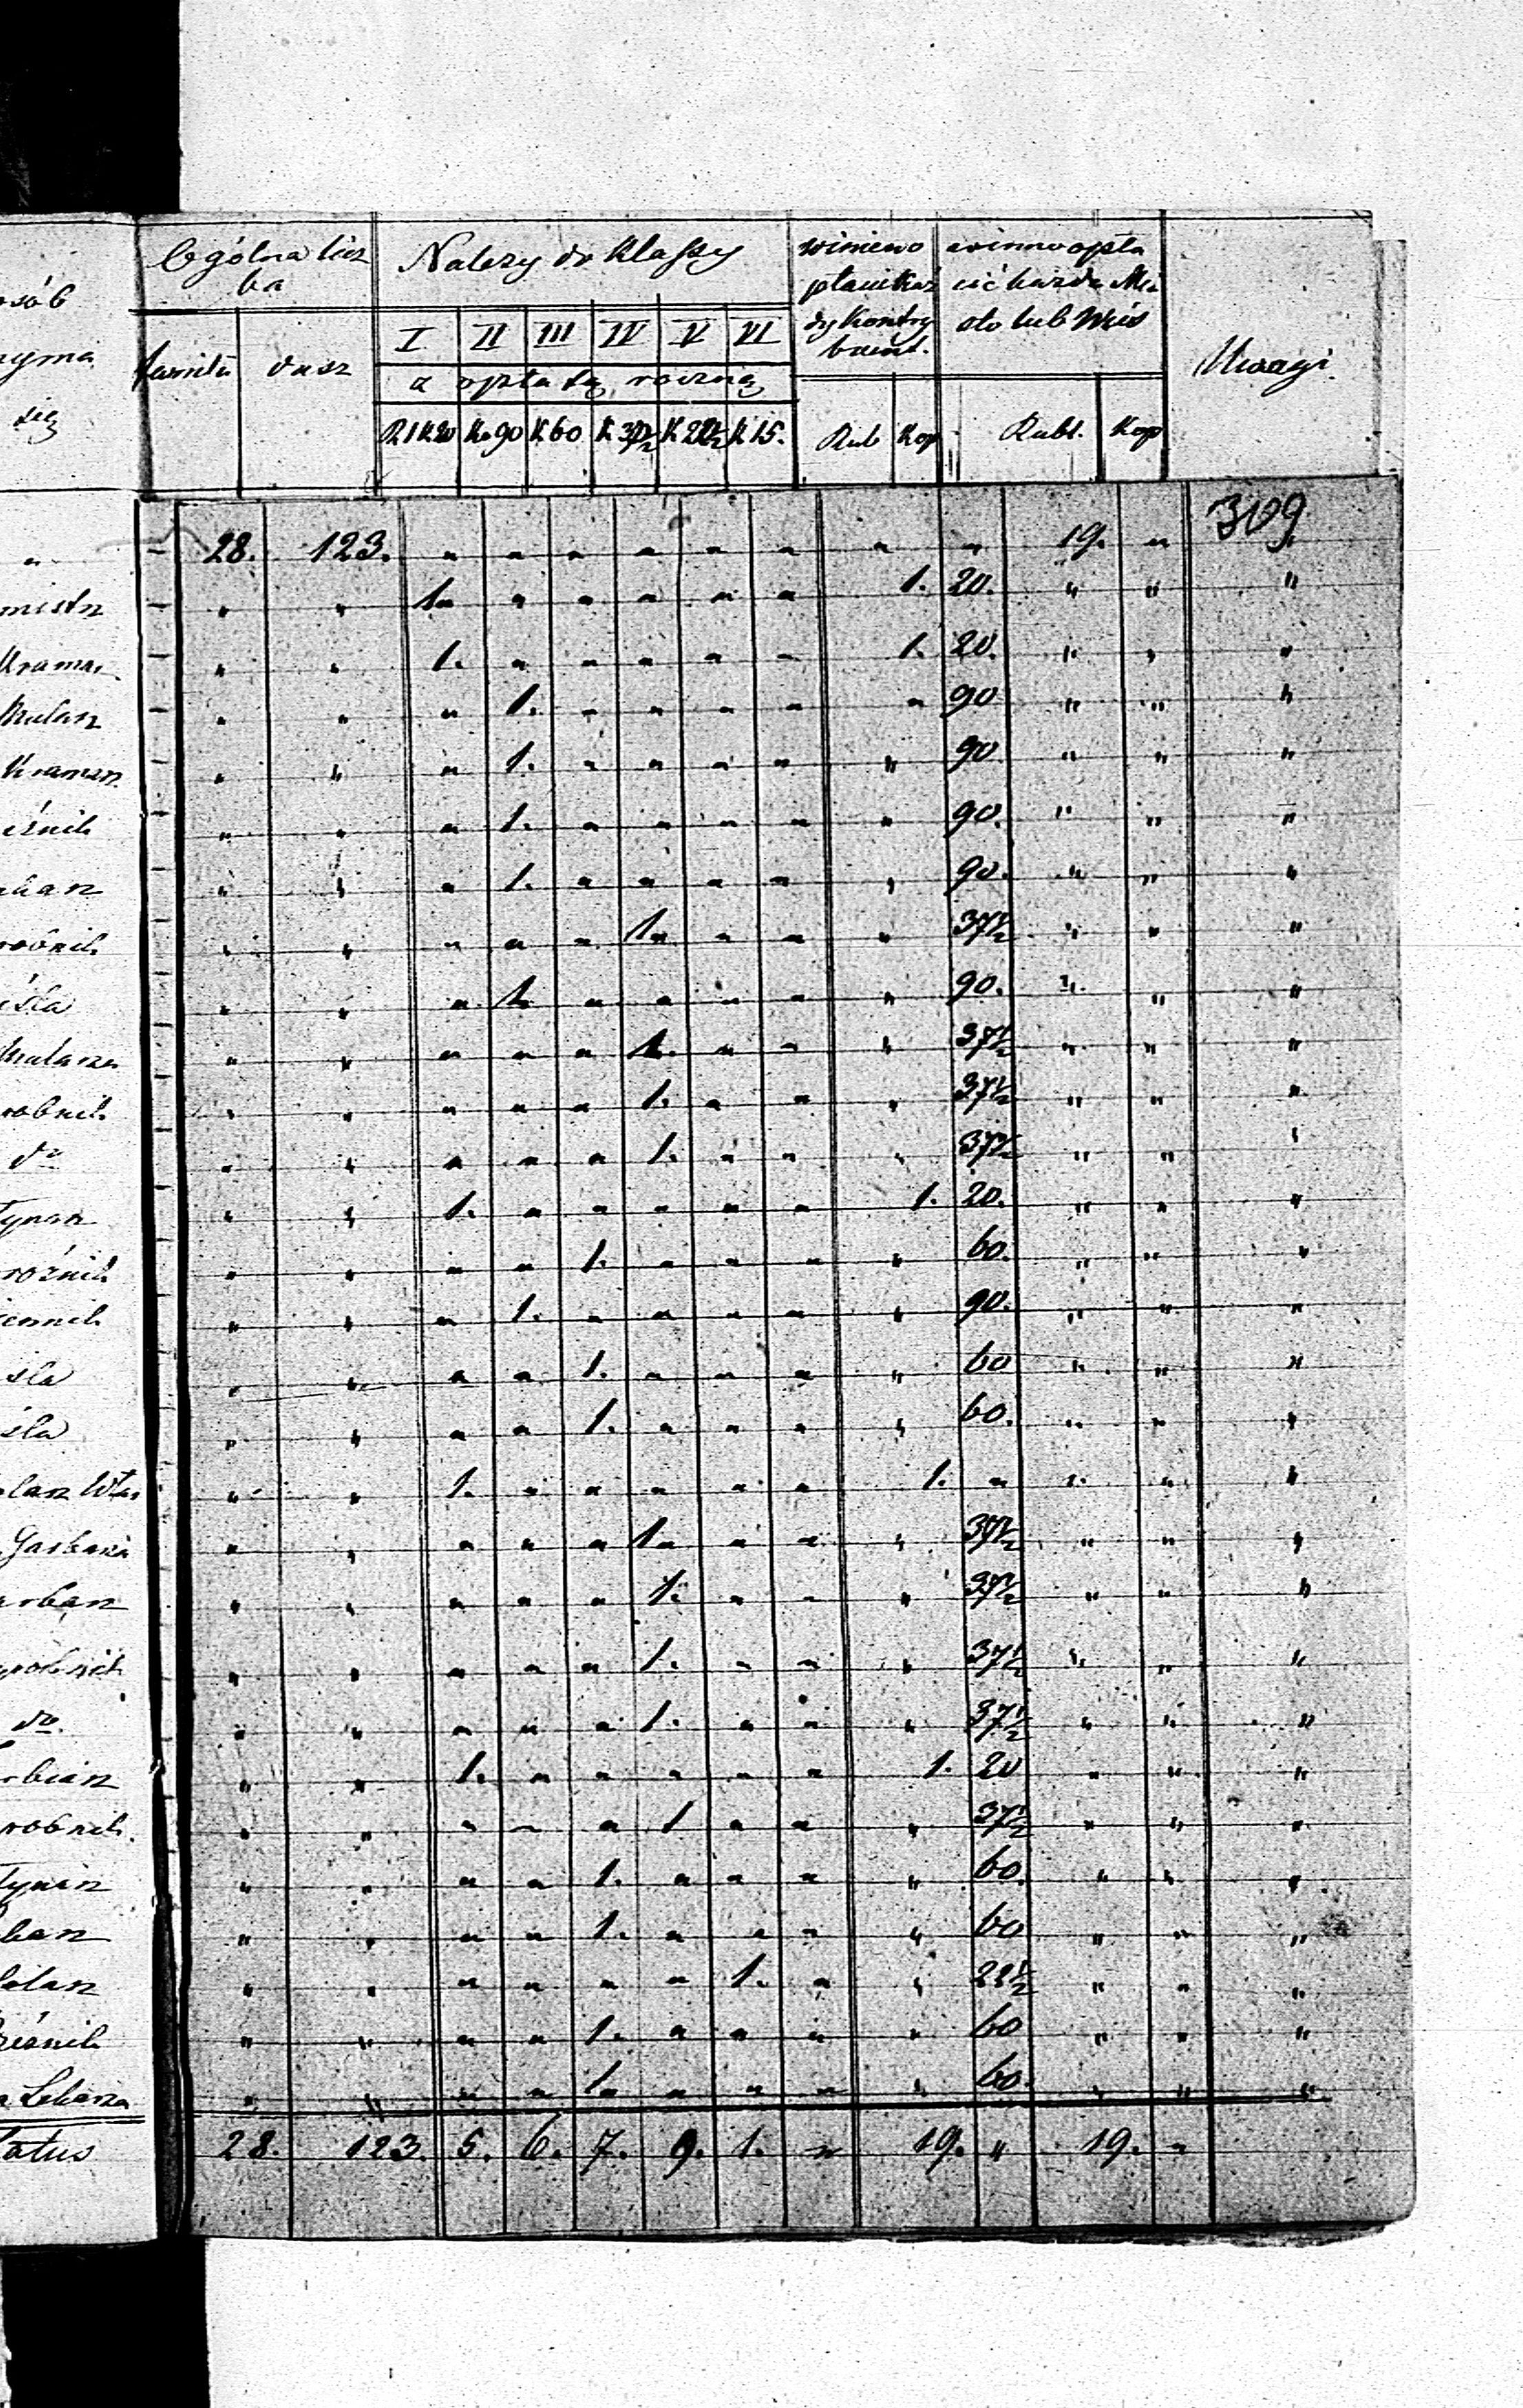 osób
Ogólna licz
ba
Należy do klassy
winieno
płacić każ
dy kontry
buent.
winno opła
cić każde Mia
sto lub Wieś
Uwagi
ryma
się
familii dusz
I II III IV V VI
a opłatą roczną
R 1 K 20 K. 90 K 60 K 37½ K 22½ K 15.
Rub Kop Rubl. Kop
309
" 28. 123. " " " " " " " " 19. " "
mistrz " " 1 " " " " " 1. 20. " " "
Kramar " " 1. " " " " " 1. 20. " " "
Mularz " " " 1. " " " " " 90 " " "
Kramarz " " " 1. " " " " " 90. " " "
eśnik " " " 1. " " " " " 90. " " "
karz " " " 1. " " " " " 90. " " "
robnik " " " " " 1 " " " 37½ " " "
eśla " " " 1. " " " " " 90. " " "
Mularz " " " " " 1. " " " 37½ " " "
robnik " " " " " 1. " " " 37½ " " "
do " " " " " 1. " " " 37½ " " "
tynarz " " 1. " " " " " 1. 20. " " "
rożnik " " " " 1. " " " " 60. " " "
iennik " " " 1. " " " " " 90. " " "
śla " " " " 1. " " " " 60 " " "
śla " " " " 1. " " " " 60. " " "
larz Wła " " 1. " " " " " 1. " " " "
Garbarza " " " " " 1 " " " 37½ " " "
arbarz " " " " " 1. " " " 37½ " " "
yrobnik " " " " " 1. " " " 37½ " " "
do. " " " " " 1. " " " 37½ " " "
rbiarz " " 1. " " " " " 1. 20 " " "
robnik. " " " " " 1 " " " 37½ " " "
tynarz " " " " 1. " " " " 60. " " "
karz " " " " 1. " " " " 60 " " "
larz " " " " " " 1. " " 22½ " " "
eśnik " " " " 1. " " " " 60 " " "
Lekarza " " " " 1 " " " " 60. " " "
Latus 28. 123. 5. 6. 7. 9. 1. " 19. " 19. "